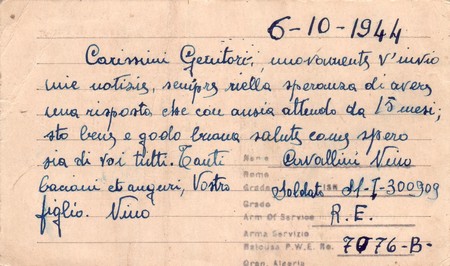 6-10-1944
Carissimi Genitori, nuovamente v'invio
mie notizie, sempre nella speranza di avere
una risposta che con ansia attendo da 15 mesi;
sto bene e godo buona salute come spero
sia di voi tutti. Tanti
bacioni et auguri, Vostro
figlio. Nino
Name Cavallini Nino
Nome
Grade Soldato M-I-300909
Grado
Arm Of Service R.E.
Arma Servizio
P.W.E. No. 7076-B-
Oran, Algeria